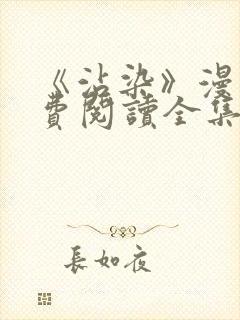 《沾染》漫
費閱讀全集
長如夜